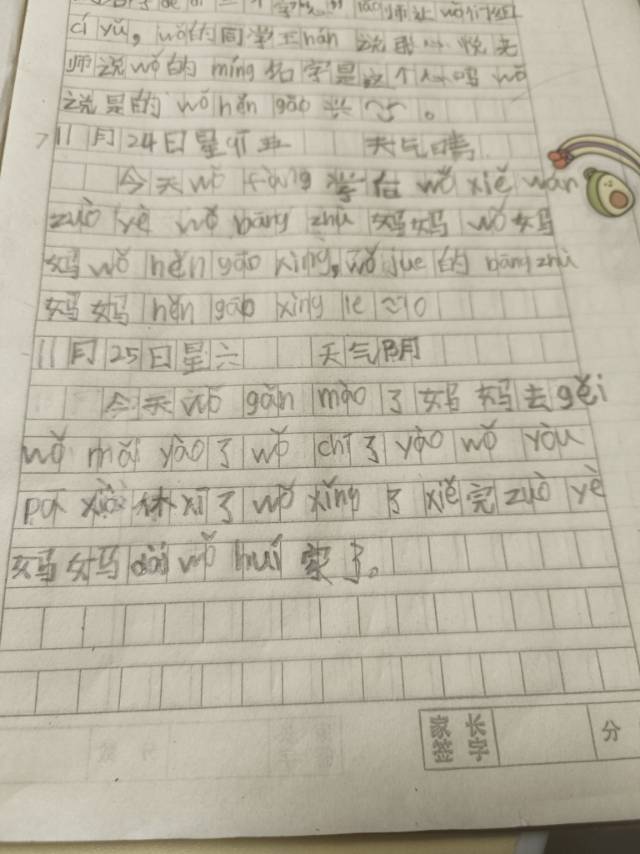 cí yǔ，wǒ的同学王hán 说
师说wǒ的 míng 字是这个 吗 wǒ
说是的 wǒ hěn gāo 兴 。
11月24日星期五 天气晴
今天wǒ fàng 学在 wǒ xiě wán
zuò yè wǒ bāng zhù 妈妈 wǒ 妈
妈 wǒ hěn gāo xìng，wǒ jue 的 bāng zhù
妈妈 hěn gāo xìng le
11月25日星六 天气阴
今天 wǒ gǎn mào 了 妈妈去gěi
wǒ mǎi yào 了 wǒ chī 了 yào wǒ yòu
休 xī 了 wǒ xǐng 了 xiě完 zuò yè
妈妈 dài wǒ huí 家了。
家长
签字
分